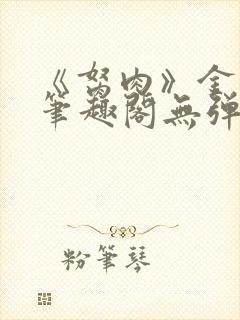 《胬肉》全
筆趣閣無彈
粉筆琴